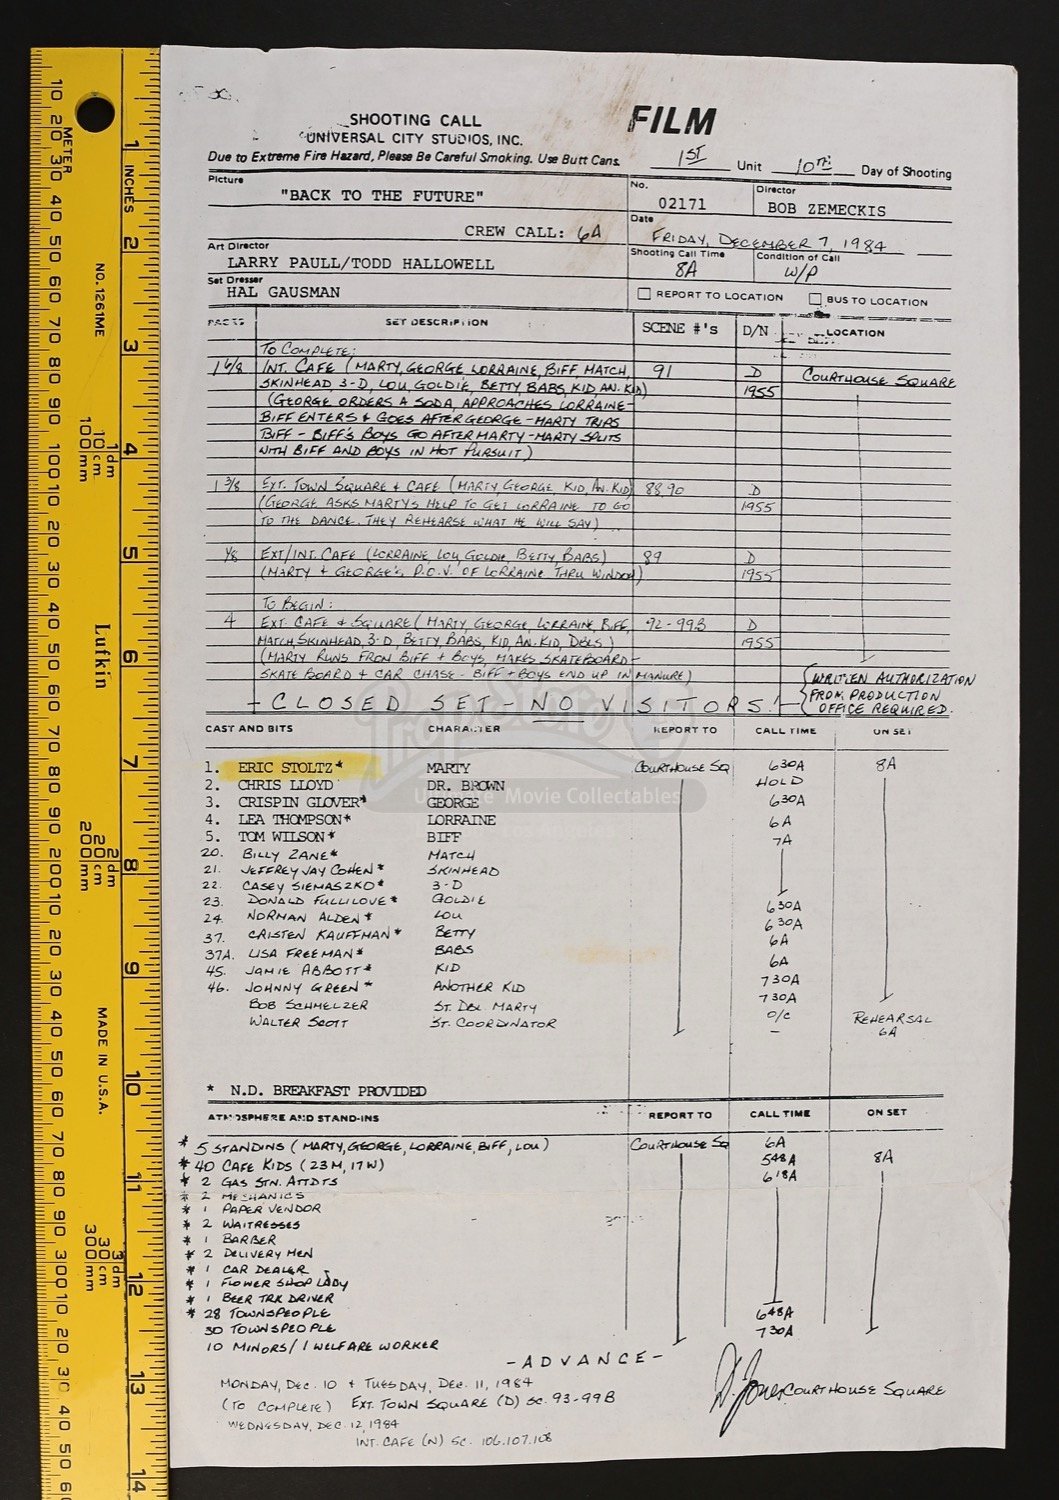 SHOOTING CALL
UNIVERSAL CITY STUDIOS, INC.
FILM
Due to Extreme Fire Hazard, Please Be Careful Smoking. Use Butt Cans.
1ST Unit 10TH Day of Shooting
Picture
"BACK TO THE FUTURE"
No.
02171
Director
BOB ZEMECKIS
CREW CALL: 6A
Date
FRIDAY, DECEMBER 7, 1984
Art Director
LARRY PAULL/TODD HALLOWELL
Shooting Call Time
8A
Condition of Call
W/P
Set Dresser
HAL GAUSMAN
REPORT TO LOCATION
BUS TO LOCATION
PAGES SET DESCRIPTION SCENE #'s D/N LOCATION
TO COMPLETE:
1 6/8 INT. CAFE (MARTY, GEORGE, LORRAINE, BIFF, MATCH, 91 D COURTHOUSE SQUARE
SKINHEAD, 3-D, LOU, GOLDIE, BETTY, BABS, KID, AN. KID) 1955
(GEORGE ORDERS A SODA, APPROACHES LORRAINE-
BIFF ENTERS & GOES AFTER GEORGE - MARTY TRIPS
BIFF - BIFF'S BOYS GO AFTER MARTY - MARTY SPLITS
WITH BIFF AND BOYS IN HOT PURSUIT)
1 3/8 EXT. TOWN SQUARE & CAFE (MARTY, GEORGE, KID, AN. KID) 88, 90 D
(GEORGE ASKS MARTY'S HELP TO GET LORRAINE TO GO 1955
TO THE DANCE. THEY REHEARSE WHAT HE WILL SAY)
1/8 EXT/INT. CAFE (LORRAINE, LOU, GOLDIE, BETTY, BABS) 89 D
(MARTY & GEORGE'S P.O.V. OF LORRAINE THRU WINDOW) 1955
TO BEGIN:
4 EXT. CAFE & SQUARE (MARTY, GEORGE, LORRAINE, BIFF, 92-99B D
MATCH, SKINHEAD, 3-D, BETTY, BABS, KID, AN. KID, DBLS) 1955
(MARTY RUNS FROM BIFF + BOYS, MAKES SKATEBOARD-
SKATE BOARD & CAR CHASE - BIFF + BOYS END UP IN MANURE)
WRITTEN AUTHORIZATION
FROM PRODUCTION
OFFICE REQUIRED.
CLOSED SET - NO VISITORS!
CAST AND BITS CHARACTER REPORT TO CALL TIME ON SET
1. ERIC STOLTZ* MARTY COURTHOUSE SQ 630A 8A
2. CHRIS LLOYD DR. BROWN HOLD
3. CRISPIN GLOVER* GEORGE 630A
4. LEA THOMPSON* LORRAINE 6A
5. TOM WILSON* BIFF 7A
20. BILLY ZANE* MATCH
21. JEFFREY JAY COHEN* SKINHEAD
22. CASEY SIEMASZKO* 3-D
23. DONALD FULLILOVE* GOLDIE 630A
24. NORMAN ALDEN* LOU 630A
37. CRISTEN KAUFFMAN* BETTY 6A
37A. LISA FREEMAN* BABS 6A
45. JAMIE ABBOTT* KID 730A
46. JOHNNY GREEN* ANOTHER KID 730A
BOB SCHMELZER ST. DBL. MARTY O/C REHEARSAL
WALTER SCOTT ST. COORDINATOR - 6A
* N.D. BREAKFAST PROVIDED
ATMOSPHERE AND STAND-INS REPORT TO CALL TIME ON SET
* 5 STANDINS (MARTY, GEORGE, LORRAINE, BIFF, LOU) COURTHOUSE SQ 6A
* 40 CAFE KIDS (23M, 17W) 548A 8A
* 2 GAS STN. ATTDTS 618A
* 2 MECHANICS
* 1 PAPER VENDOR
* 2 WAITRESSES
* 1 BARBER
* 2 DELIVERY MEN
* 1 CAR DEALER
* 1 FLOWER SHOP LADY
* 1 BEER TRK DRIVER
* 28 TOWNSPEOPLE 648A
30 TOWNSPEOPLE 730A
10 MINORS/1 WELFARE WORKER
-ADVANCE-
MONDAY, DEC. 10 & TUESDAY, DEC. 11, 1984
(TO COMPLETE) EXT. TOWN SQUARE (D) SC. 93-99B COURTHOUSE SQUARE
WEDNESDAY, DEC. 12, 1984
INT. CAFE (N) SC. 106, 107, 108
Prop Store
Ultimate Movie Collectables
METER
INCHES
NO. 1261ME
Lufkin
MADE IN U.S.A.
1dm
10cm
100mm
2dm
20cm
200mm
3dm
30cm
300mm
1
2
3
4
5
6
7
8
9
10
11
12
13
14